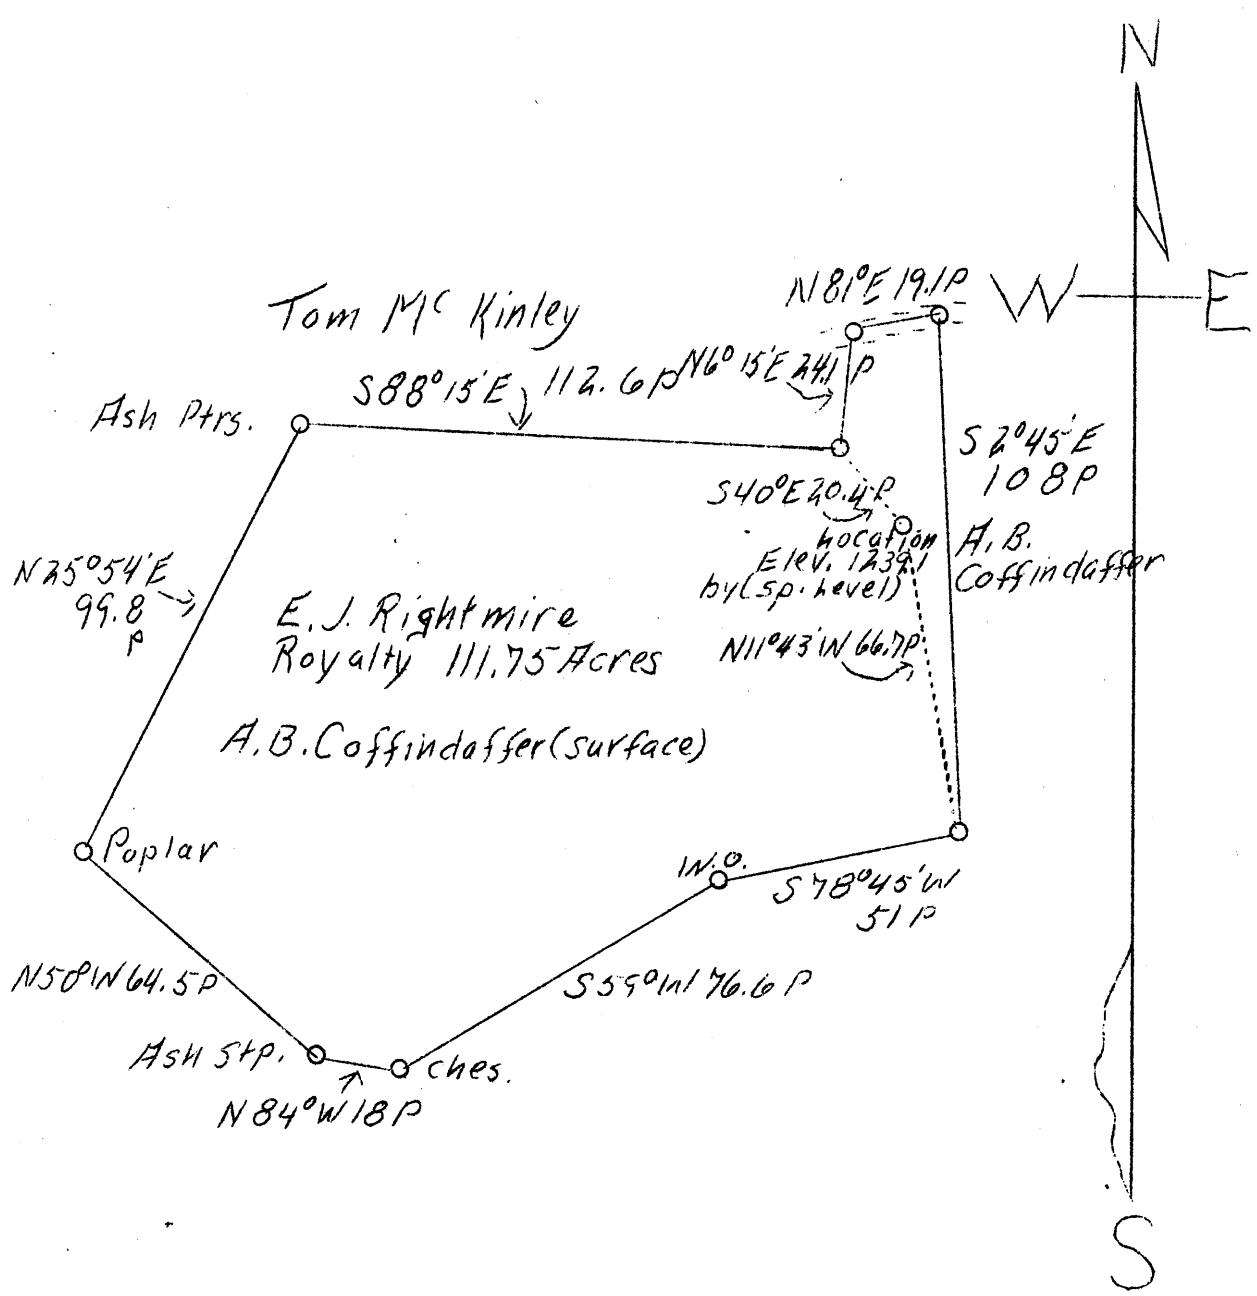 N
N81°E 19.1P
W
E
Tom Mc Kinley
S88°15'E 112.6P
N6°15'E 24.1 P
Ash Ptrs.
S2°45'E
108P
S40°E 20.4P
Location
Elev. 1239.1
by(sp. Level)
A.B.
Coffindaffer
N25°54'E
99.8
P
E.J. Rightmire
Royalty 111.75 Acres
N11°43'W 66.7P
A.B. Coffindaffer (surface)
Poplar
W.O.
S78°45'W
51P
N58°W 64.5P
S59°W 76.6P
Ash Stp.
ches.
N84°W 18P
S